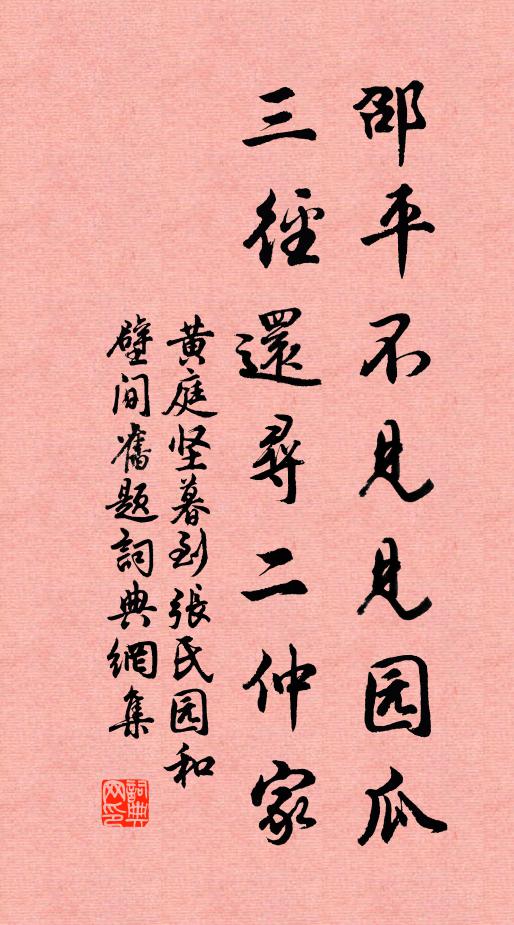 邵平不见见园瓜
三径還尋二仲家
黄庭坚暮到張氏园和
壁间舊题詞典網集
詞典网印